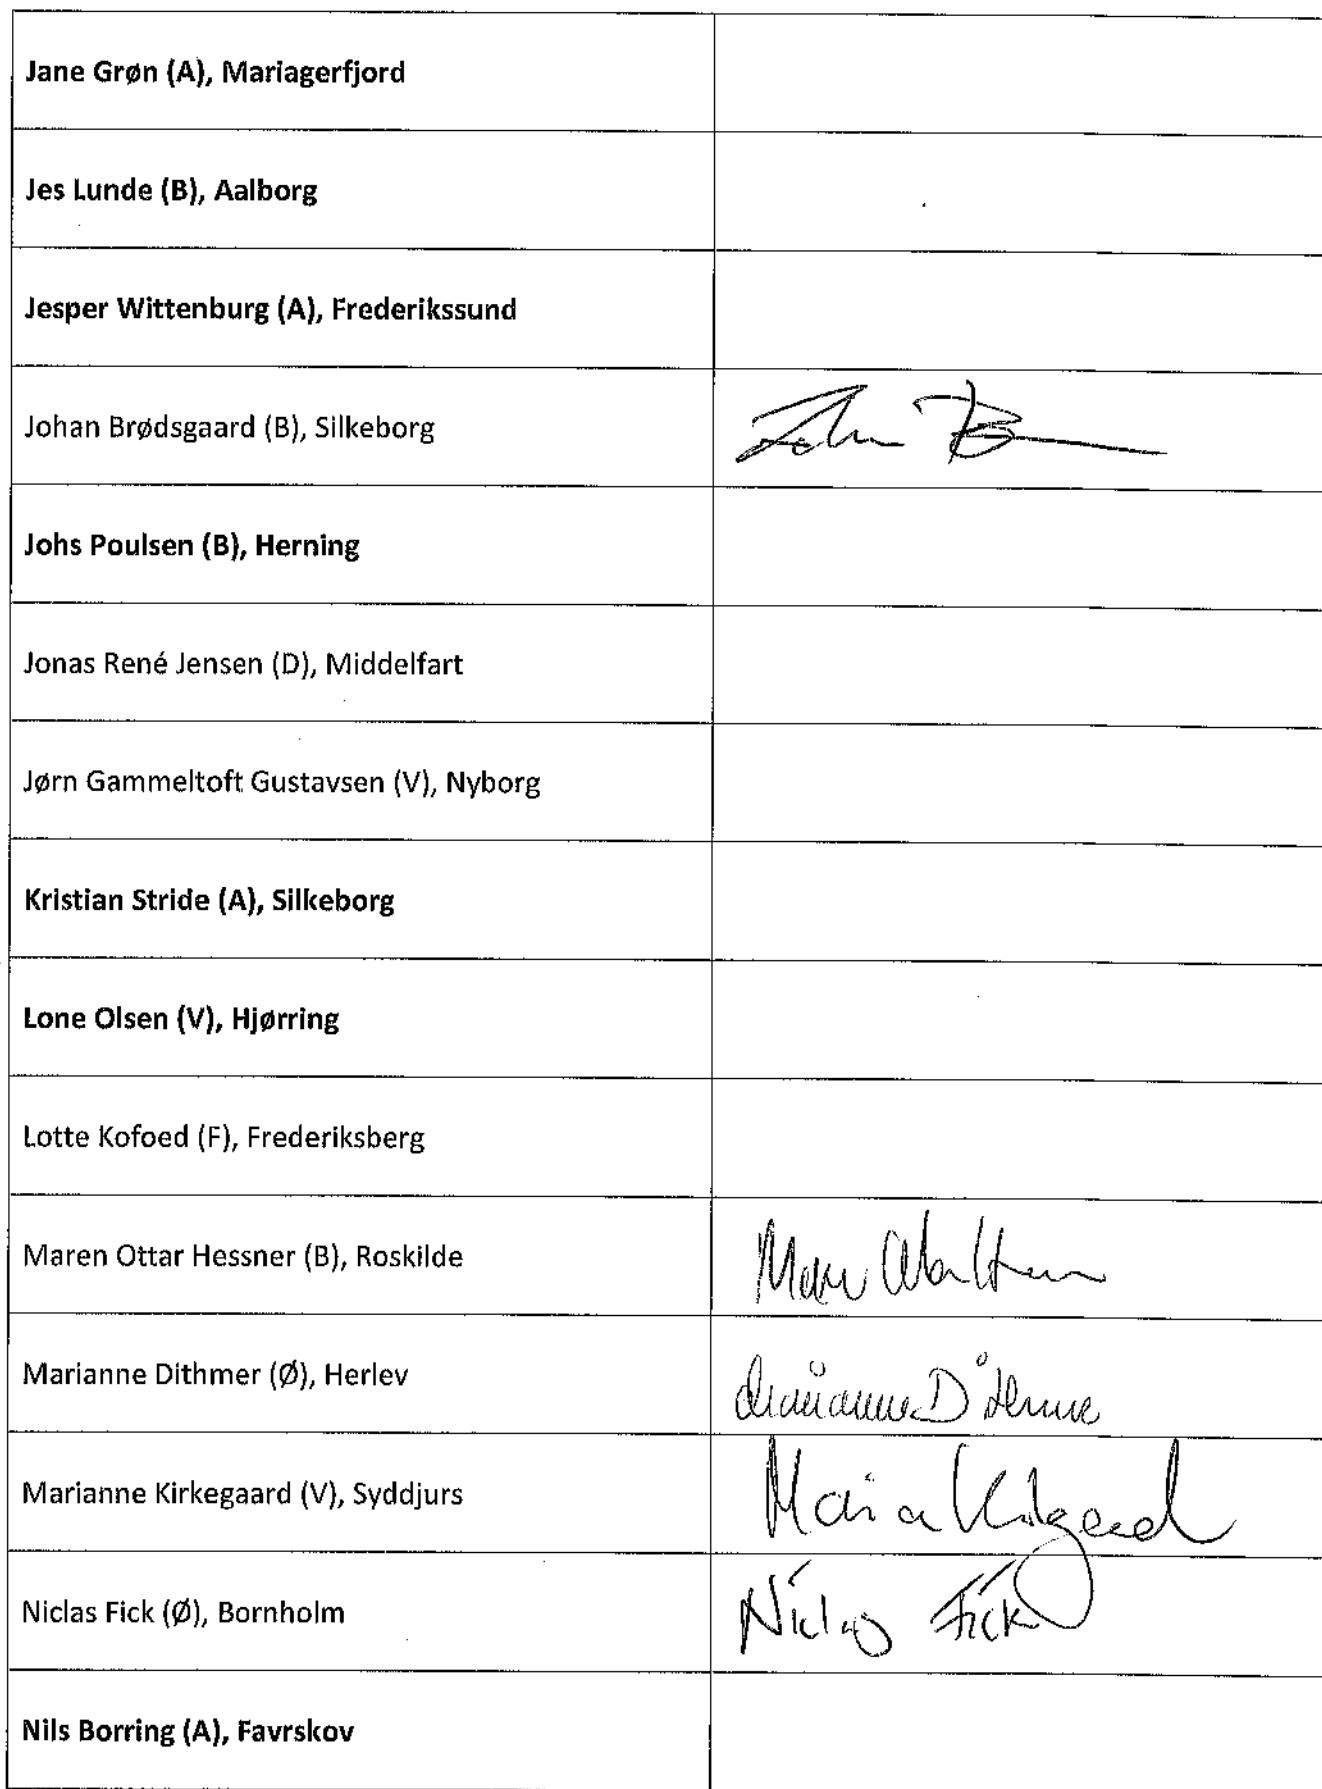 Jane Grøn (A), Mariagerfjord
Jes Lunde (B), Aalborg
Jesper Wittenburg (A), Frederikssund
Johan Brødsgaard (B), Silkeborg
Johs Poulsen (B), Herning
Jonas René Jensen (D), Middelfart
Jørn Gammeltoft Gustavsen (V), Nyborg
Kristian Stride (A), Silkeborg
Lone Olsen (V), Hjørring
Lotte Kofoed (F), Frederiksberg
Maren Ottar Hessner (B), Roskilde
Marianne Dithmer (Ø), Herlev
Marianne Kirkegaard (V), Syddjurs
Niclas Fick (Ø), Bornholm Niclas Fick
Nils Borring (A), Favrskov